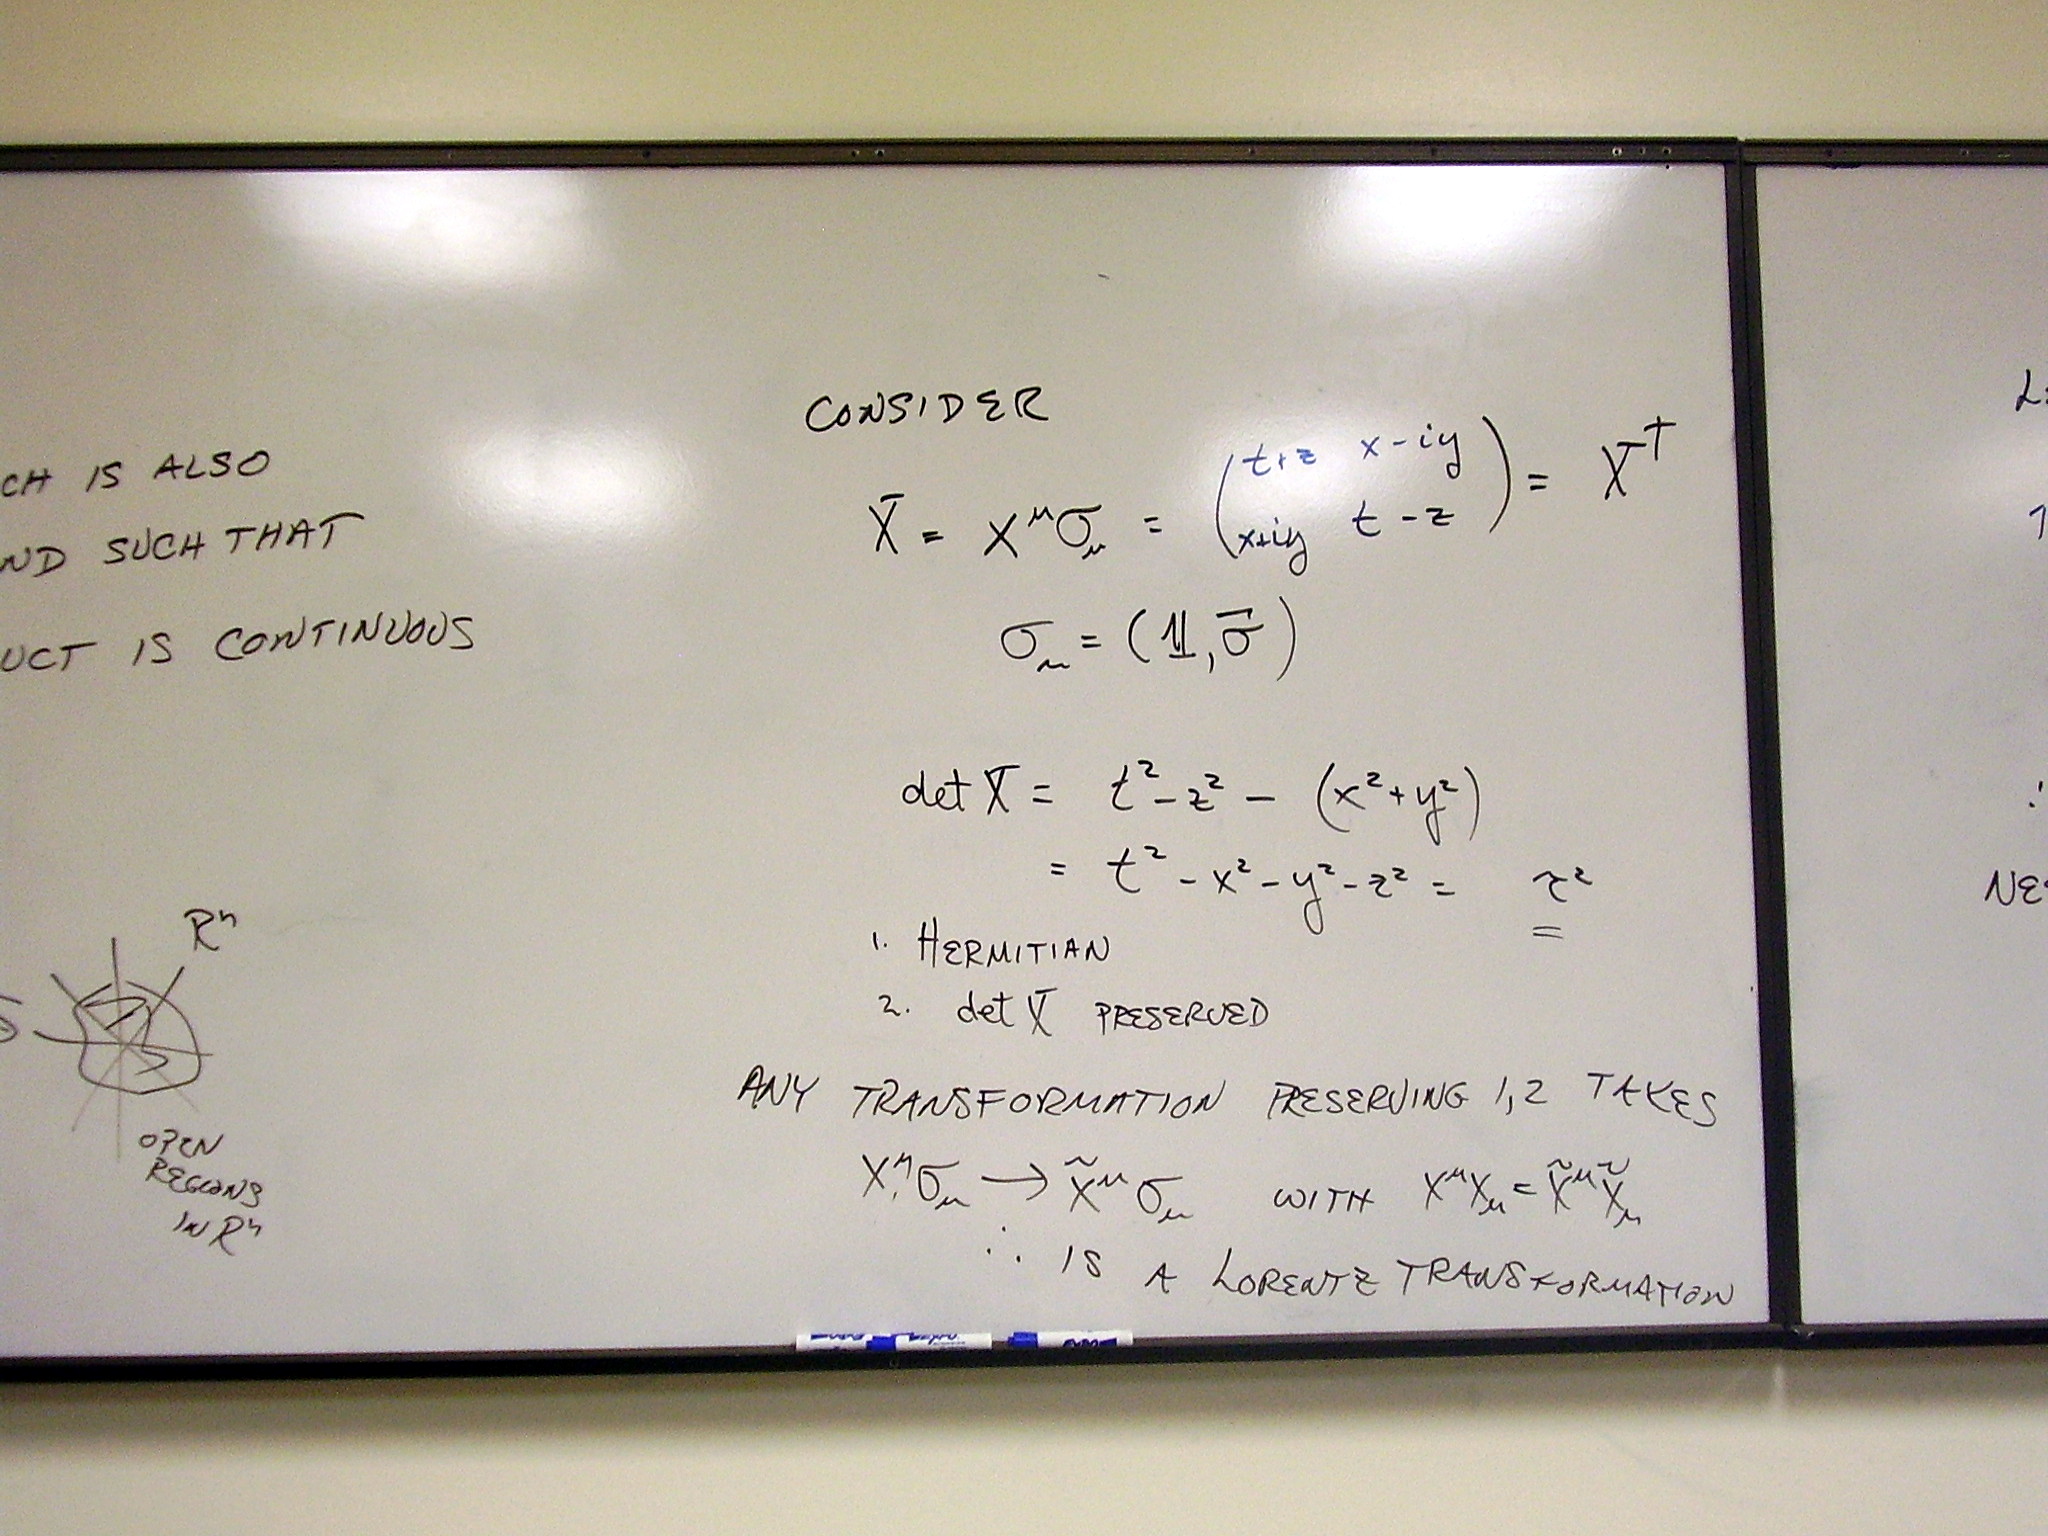 CH IS ALSO
ND SUCH THAT
UCT IS CONTINUOUS
Rⁿ
S
OPEN
REGIONS
IN Rⁿ
CONSIDER
X = x^μ σ_μ = ( t+z x-iy
x+iy t-z ) = X†
σ_μ = (𝟙, σ⃗)
det X = t² - z² - (x² + y²)
= t² - x² - y² - z² = τ²
1. HERMITIAN
2. det X PRESERVED
ANY TRANSFORMATION PRESERVING 1,2 TAKES
x^μ σ_μ → x̃^μ σ_μ WITH x^μ x_μ = x̃^μ x̃_μ
∴ IS A LORENTZ TRANSFORMATION
NE